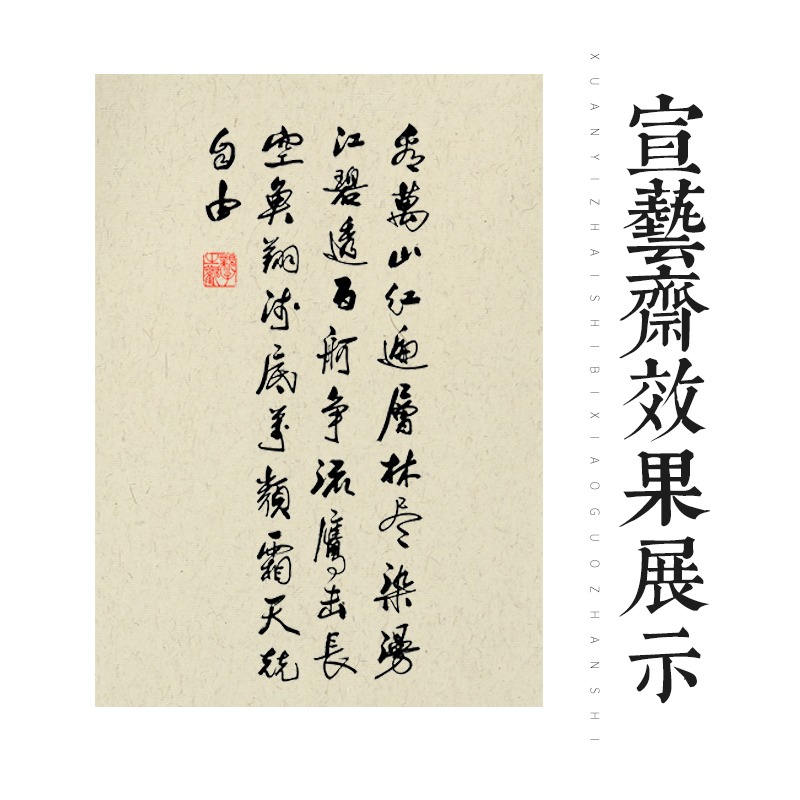 宣藝齋效果展示
XUANYIZHAISHIBIXIAOGUOZHANSHI
看萬山红遍層林尽染漫
江碧透百舸争流鹰击長
空魚翔浅底萬類霜天競
自由